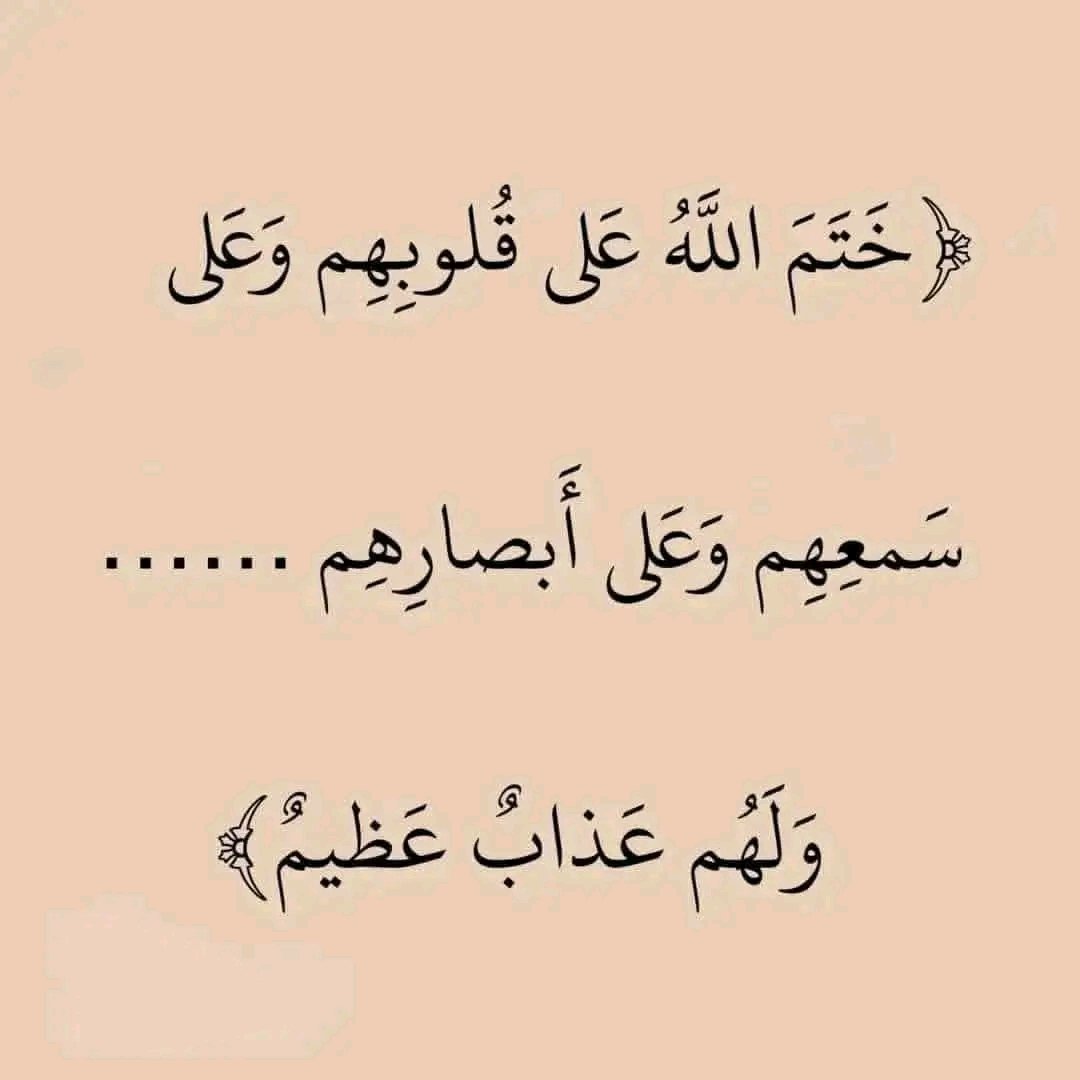 ﴿خَتَمَ اللَّهُ عَلى قُلوبِهِم وَعَلى
سَمعِهِم وَعَلى أَبصارِهِم ......
وَلَهُم عَذابٌ عَظيمٌ﴾